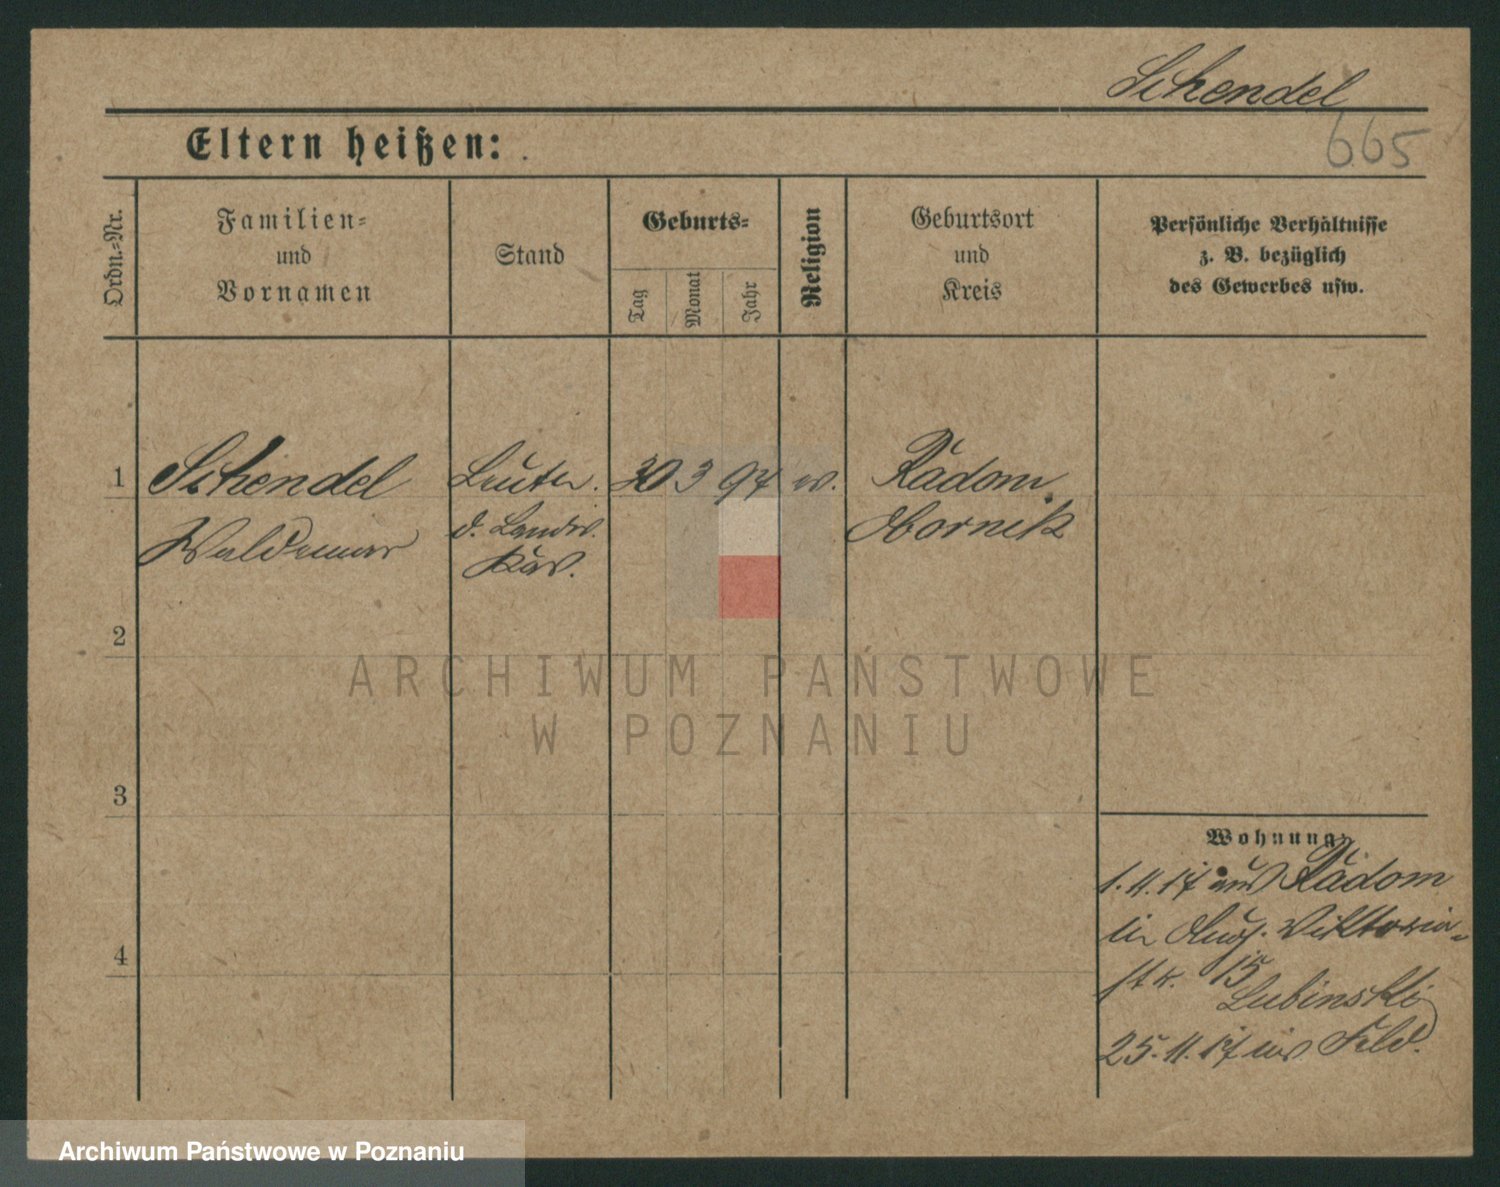 Schendel
665
Eltern heißen:
Ordn.-Nr.
Familien-
und
Vornamen
Stand
Geburts-
Tag
Monat
Jahr
Religion
Geburtsort
und
Kreis
Persönliche Verhältnisse
z. B. bezüglich
des Gewerbes usw.
1
Schendel
Waldemar
Leutn.
d. Landw.
Kav.
30 3 94
Radom
Obornik
2
3
4
ARCHIWUM PAŃSTWOWE
W POZNANIU
Wohnung
1.11.17 aus Radom
in Aug. Viktoria-
str. 15
Lubinski
25.11.17 ins Feld.
Archiwum Państwowe w Poznaniu